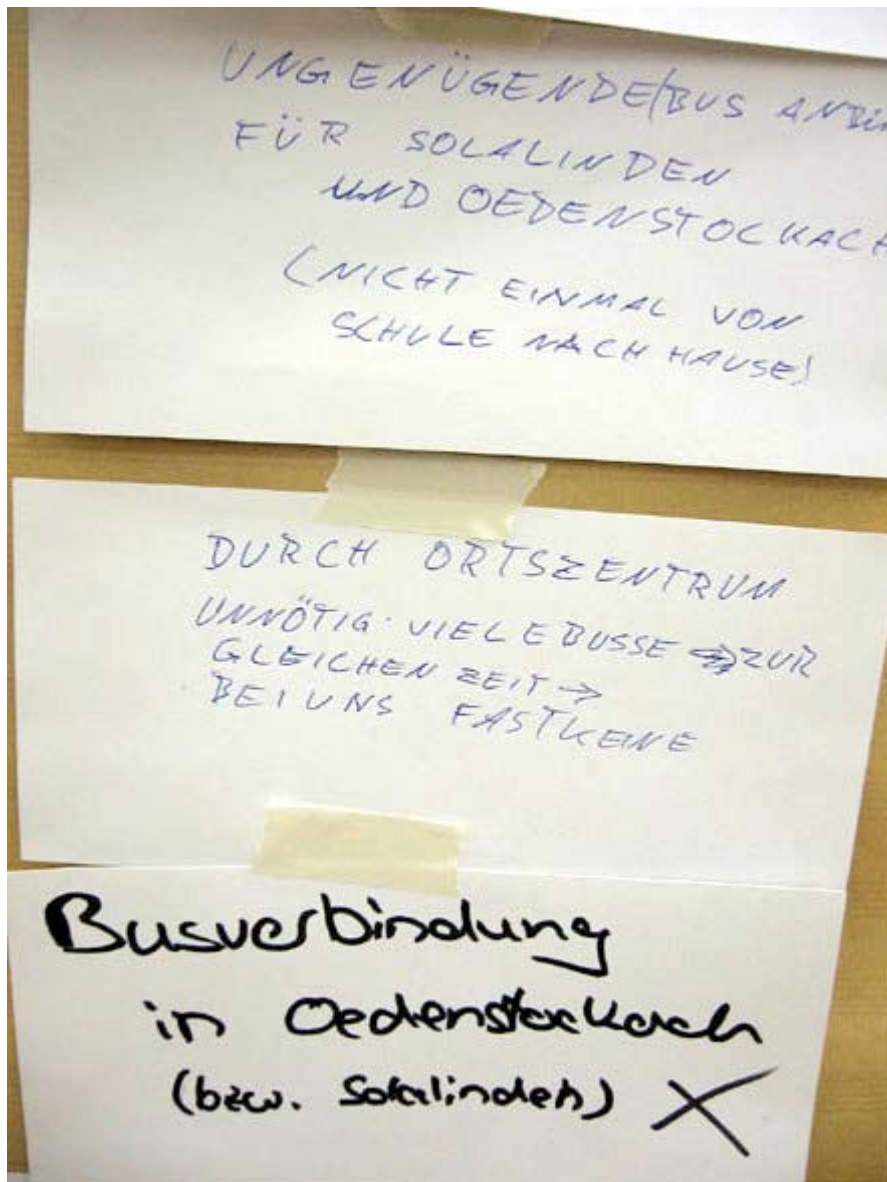 UNGENÜGENDE/BUS
FÜR SOLALINDEN
UND OEDENSTOCKACH
(NICHT EINMAL VON
SCHULE NACH HAUSE)
DURCH ORTSZENTRUM
UNNÖTIG VIELE BUSSE ZUR
GLEICHEN ZEIT →
BEI UNS FAST KEINE
Busverbindung
in Oedenstockach
(bzw. Solalinden) X